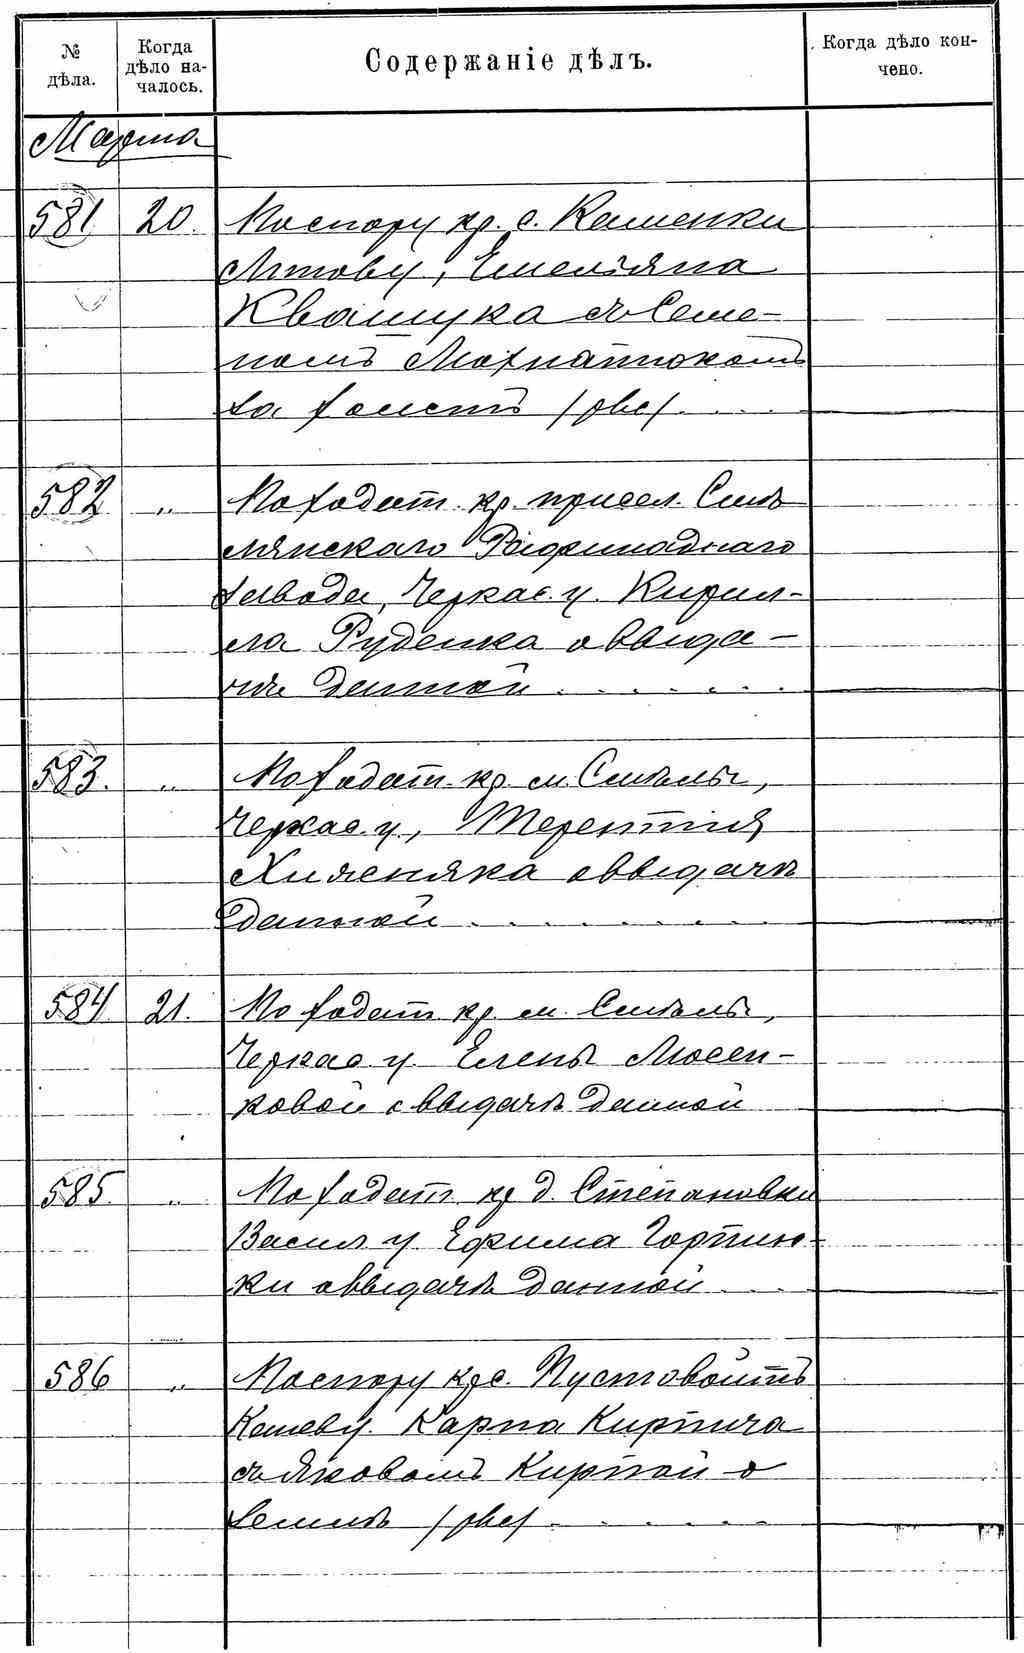 № дѣла.
Когда дѣло началось.
Содержаніе дѣлъ.
Когда дѣло кончено.
Марта
581 20. По спору кр. с. Каменки
Емельяна
Квашука съ Семе-
номъ
за
582 „ По ходат. кр. присел. Смѣ
лянскаго Рафинаднаго
завода, Черкас. у. Кирил-
ла Руденка о выда-
чѣ данной
583. „ По ходат. кр. м. Смѣлы,
Черкас. у., Терентія
Хижняка о выдачѣ
данной
584 21. По ходат. кр. м. Смѣлы,
Черкас. у. Елены Люсен-
ковой о выдачѣ данной
585. „ По ходат. кр. д. Степановки
Васил. у. Ефима
ки о выдачѣ данной
586 „ По спору кр. с. Пустовойтъ
Каневу. Карпа Кирпича
съ Яковомъ Кирпой о
землѣ